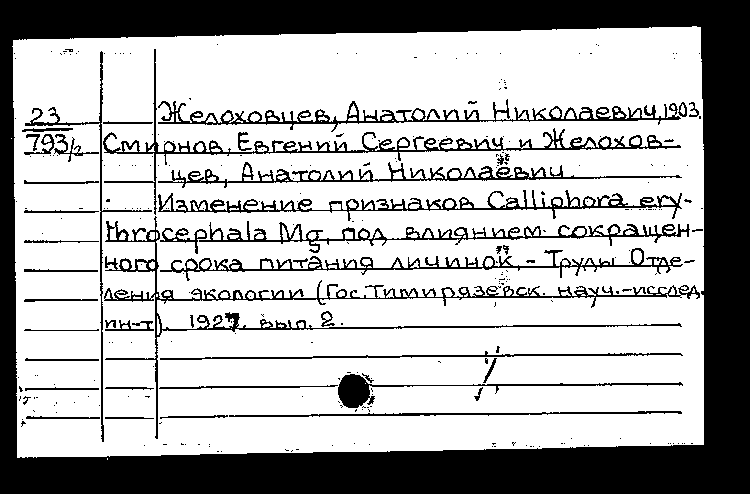 23 Желоховцев, Анатолий Николаевич, 1903.
793/2 Смирнов, Евгений Сергеевич и Желохов-
цев, Анатолий Николаевич.
Изменение признаков Calliphora ery-
throcephala Mg. под влиянием сокращен-
ного срока питания личинок. - Труды Отде-
ления экологии (Гос. Тимирязевск. науч.-исслед.
ин-т). 1927. вып. 2.